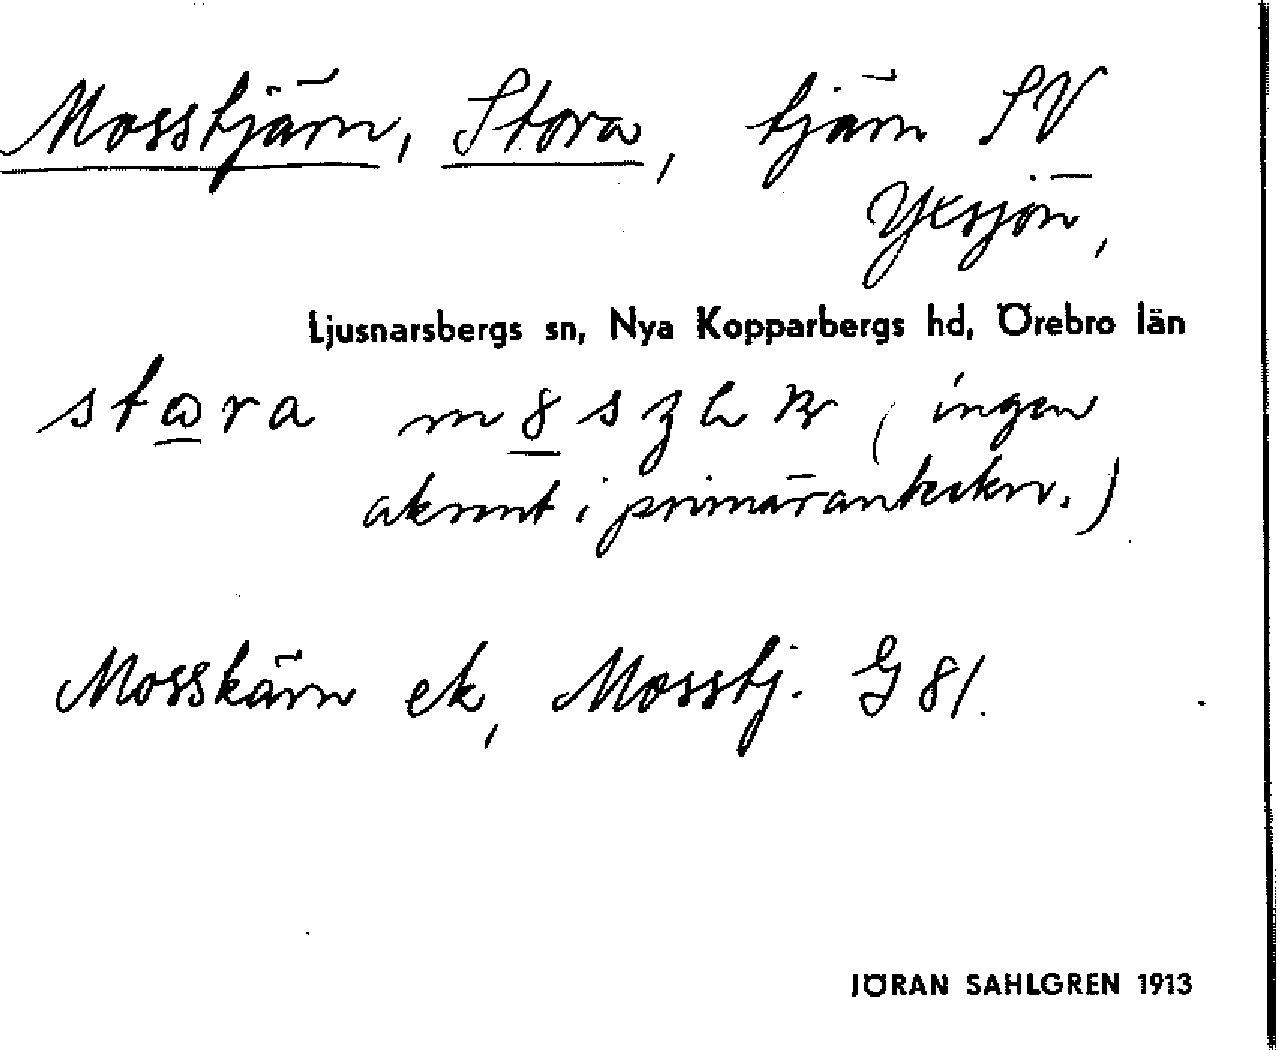 Mosstjärn, Stora, tjärn SV
Yxsjön,
Ljusnarsbergs sn, Nya Kopparbergs hd, Örebro län
(ingen
aksent i primäranteckn.)
Mosskärn ek, Mosstj. G 81.
JÖRAN SAHLGREN 1913